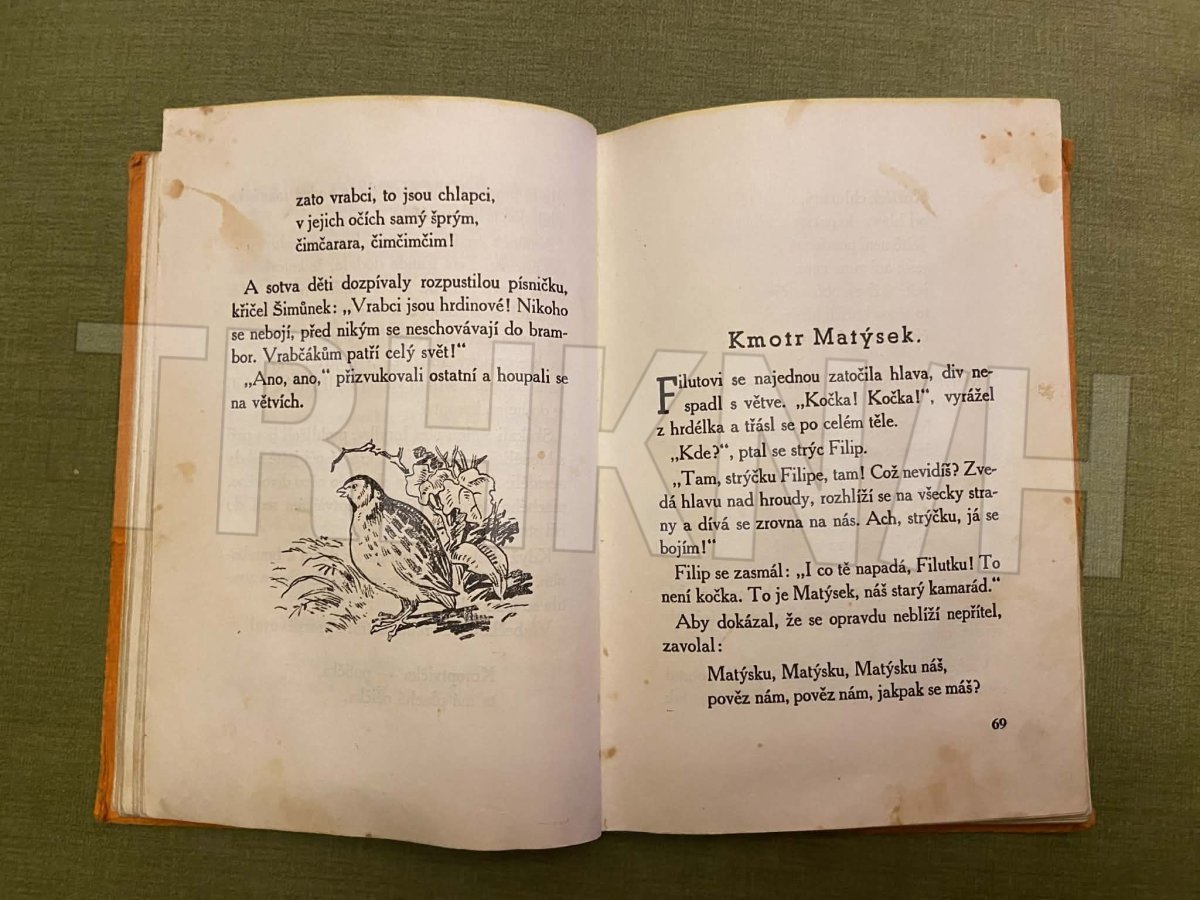 zato vrabci, to jsou chlapci,
v jejich očích samý šprým,
čimčarara, čimčimčim!
A sotva děti dozpívaly rozpustilou písničku,
křičel Šimůnek: „Vrabci jsou hrdinové! Nikoho
se nebojí, před nikým se neschovávají do bram-
bor. Vrabčákům patří celý svět!“
„Ano, ano,“ přizvukovali ostatní a houpali se
na větvích.
Kmotr Matýsek.
Filutovi se najednou zatočila hlava, div ne-
spadl s větve. „Kočka! Kočka!“, vyrážel
z hrdélka a třásl se po celém těle.
„Kde?“, ptal se strýc Filip.
„Tam, strýčku Filipe, tam! Což nevidíš? Zve-
dá hlavu nad hroudy, rozhlíží se na všecky stra-
ny a dívá se zrovna na nás. Ach, strýčku, já se
bojím!“
Filip se zasmál: „I co tě napadá, Filutku! To
není kočka. To je Matýsek, náš starý kamarád.“
Aby dokázal, že se opravdu neblíží nepřítel,
zavolal:
Matýsku, Matýsku, Matýsku náš,
pověz nám, pověz nám, jakpak se máš?
69